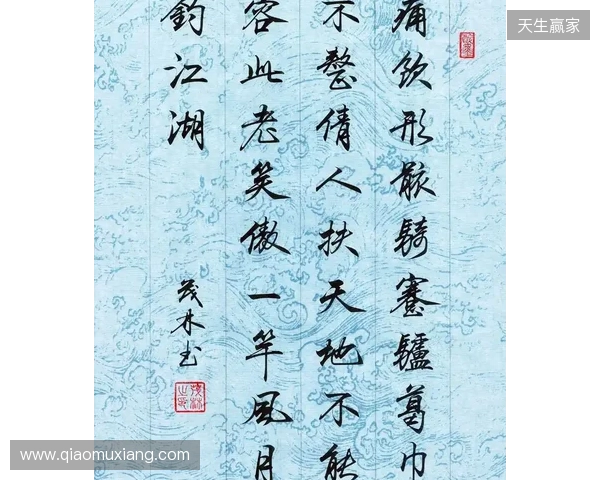 天生赢家
痛飲形骸騎蹇驢葛巾
不整倩人扶天地不能
容此老笑傲一竿風月
釣江湖
茂林书
www.qiaomuxiang.com